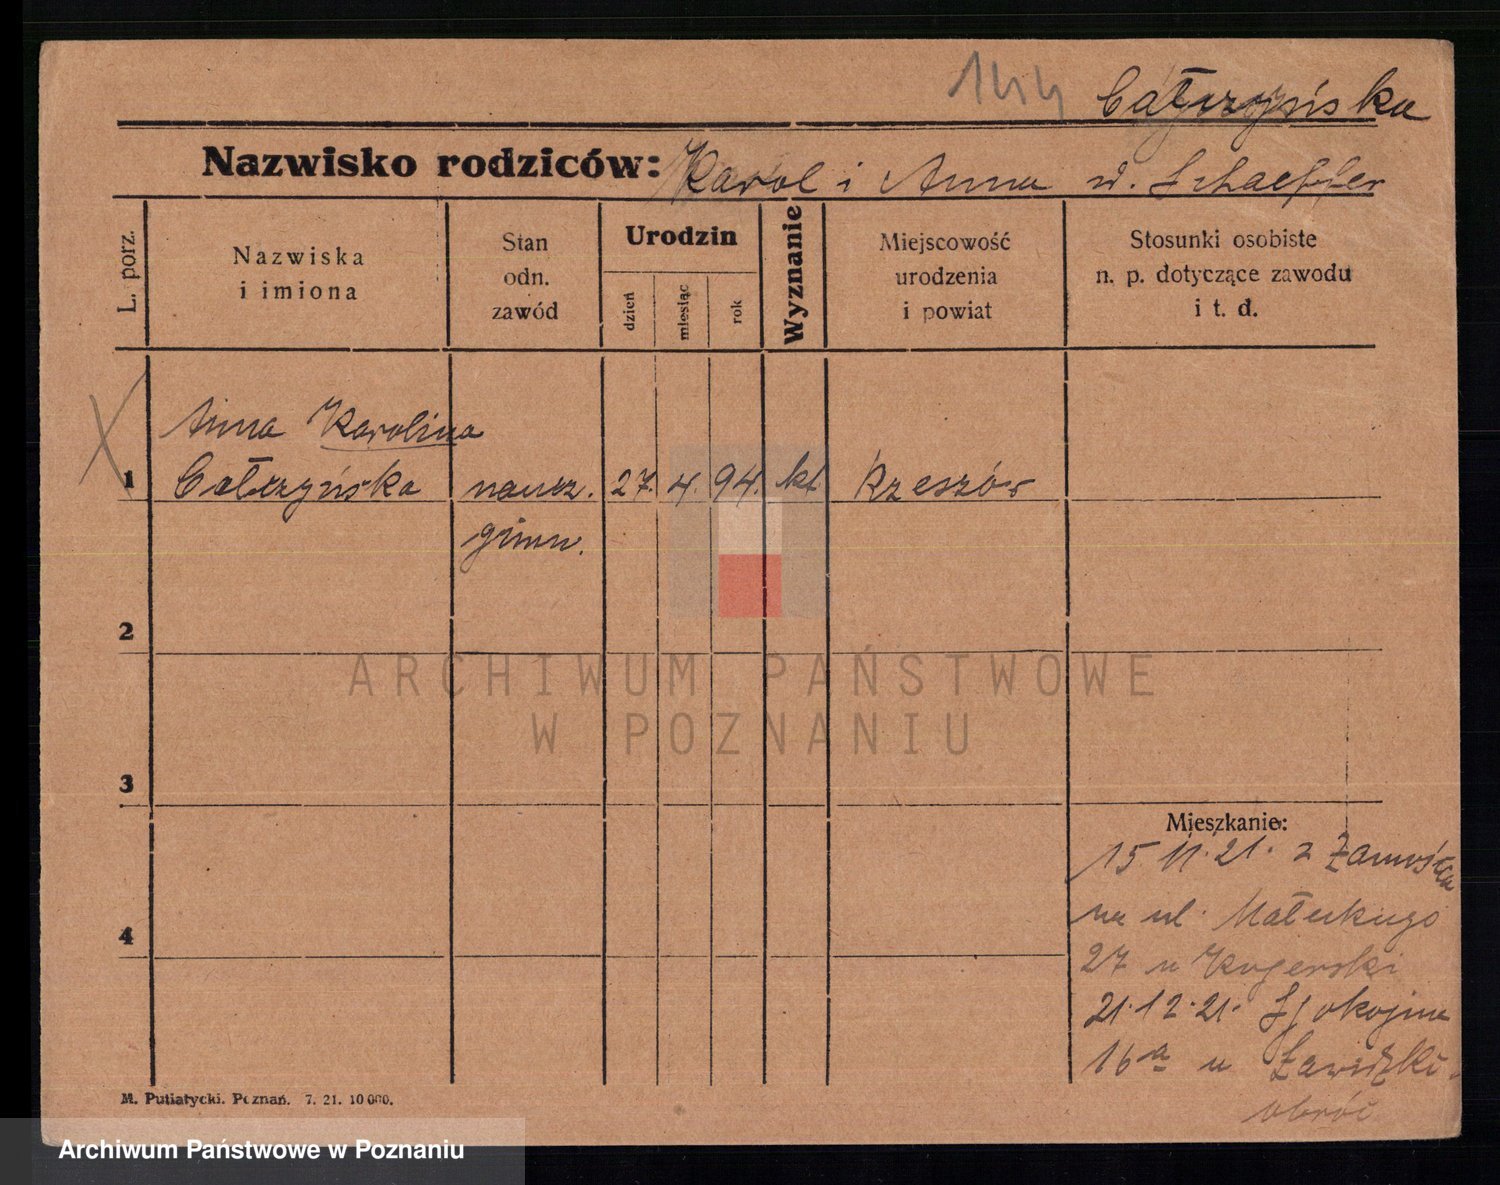 144 Całczyńska
Nazwisko rodziców: Karol i Anna w. Schaeffer
L. porz.
Nazwiska
i imiona
Stan
odn.
zawód
Urodzin
dzień
miesiąc
rok
Wyznanie
Miejscowość
urodzenia
i powiat
Stosunki osobiste
n. p. dotyczące zawodu
i t. d.
Anna Karolina
1 Całczyńska naucz. 27. 4. 94. kt Rzeszów
gimn.
2
3
4
Mieszkanie:
15 11. 21. z Zamościa
na ul. Małeckiego
27 u
21. 12. 21. Spokojna
16a u
obróć
M. Putiatycki. Poznań. 7. 21. 10 000.
ARCHIWUM PAŃSTWOWE
W POZNANIU
Archiwum Państwowe w Poznaniu